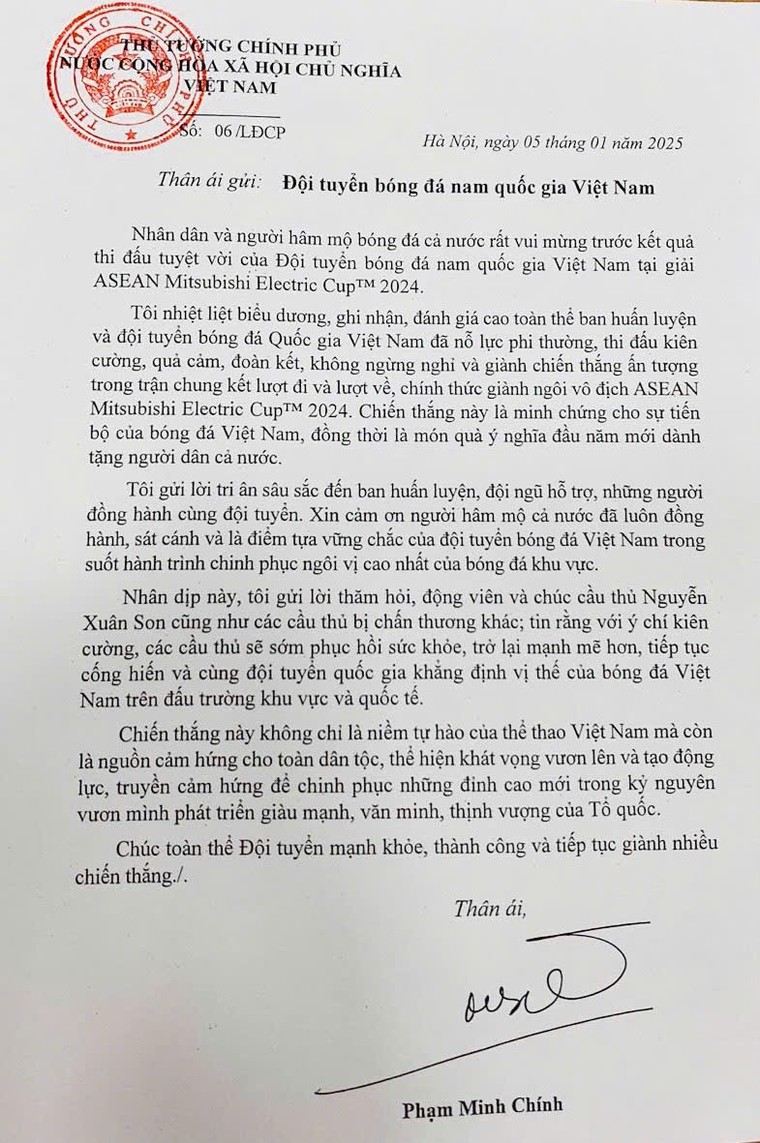 THỦ TƯỚNG CHÍNH PHỦ
NƯỚC CỘNG HÒA XÃ HỘI CHỦ NGHĨA
VIỆT NAM
THỦ TƯỚNG CHÍNH PHỦ
Số: 06/LĐCP
Hà Nội, ngày 05 tháng 01 năm 2025
Thân ái gửi: Đội tuyển bóng đá nam quốc gia Việt Nam
Nhân dân và người hâm mộ bóng đá cả nước rất vui mừng trước kết quả
thi đấu tuyệt vời của Đội tuyển bóng đá nam quốc gia Việt Nam tại giải
ASEAN Mitsubishi Electric Cup™ 2024.
Tôi nhiệt liệt biểu dương, ghi nhận, đánh giá cao toàn thể ban huấn luyện
và đội tuyển bóng đá Quốc gia Việt Nam đã nỗ lực phi thường, thi đấu kiên
cường, quả cảm, đoàn kết, không ngừng nghỉ và giành chiến thắng ấn tượng
trong trận chung kết lượt đi và lượt về, chính thức giành ngôi vô địch ASEAN
Mitsubishi Electric Cup™ 2024. Chiến thắng này là minh chứng cho sự tiến
bộ của bóng đá Việt Nam, đồng thời là món quà ý nghĩa đầu năm mới dành
tặng người dân cả nước.
Tôi gửi lời tri ân sâu sắc đến ban huấn luyện, đội ngũ hỗ trợ, những người
đồng hành cùng đội tuyển. Xin cảm ơn người hâm mộ cả nước đã luôn đồng
hành, sát cánh và là điểm tựa vững chắc của đội tuyển bóng đá Việt Nam trong
suốt hành trình chinh phục ngôi vị cao nhất của bóng đá khu vực.
Nhân dịp này, tôi gửi lời thăm hỏi, động viên và chúc cầu thủ Nguyễn
Xuân Son cũng như các cầu thủ bị chấn thương khác; tin rằng với ý chí kiên
cường, các cầu thủ sẽ sớm phục hồi sức khỏe, trở lại mạnh mẽ hơn, tiếp tục
cống hiến và cùng đội tuyển quốc gia khẳng định vị thế của bóng đá Việt
Nam trên đấu trường khu vực và quốc tế.
Chiến thắng này không chỉ là niềm tự hào của thể thao Việt Nam mà còn
là nguồn cảm hứng cho toàn dân tộc, thể hiện khát vọng vươn lên và tạo động
lực, truyền cảm hứng để chinh phục những đỉnh cao mới trong kỷ nguyên
vươn mình phát triển giàu mạnh, văn minh, thịnh vượng của Tổ quốc.
Chúc toàn thể Đội tuyển mạnh khỏe, thành công và tiếp tục giành nhiều
chiến thắng./.
Thân ái,
Phạm Minh Chính